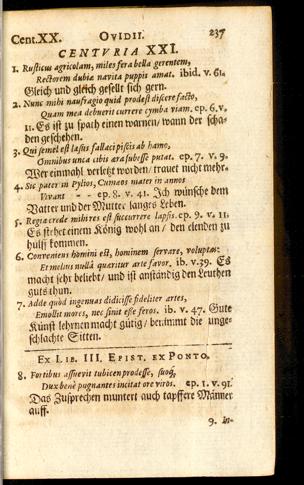 Cent. XX. OVIDII. 237
CENTURIA XXI.
1. Rusticus agricolam, miles fera bella gerentem,
Rectorem dubiæ navita puppis amat. ibid. v. 61.
Gleich und gleich gesellt sich gern.
2. Nunc mihi naufragio quid prodest discere facto,
Quam mea debuerit currere cymba viam. ep. 6. v.
11. Es ist zu spath einen warnen / wann der scha-
den geschehen.
3. Qui semel est læsus fallaci piscis ab hamo,
Omnibus unca cibis æra subesse putat. ep. 7. v. 9.
Wer einmahl verletzt worden / trauet nicht mehr.
4. Sic pater in Pylios, Cumæos mater in annos
Vivant - - ep. 8. v. 41. Ich wünsche dem
Vatter und der Mutter langes Leben.
5. Regia crede mihi res est succurrere lapsis. ep. 9. v. 11.
Es stehet einem König wohl an / den elenden zu
hülff kommen.
6. Conveniens homini est, hominem servare, voluptas:
Et melius nullâ quæritur arte favor. ib. v. 39. Es
macht sehr beliebt / und ist anständig den Leuthen
guts thun.
7. Adde quòd ingenuas didicisse fideliter artes,
Emollit mores, nec sinit esse feros. ib. v. 47. Gute
Künst lehrnen macht gütig / benimmt die unge-
schlachte Sitten.
EX LIB. III. EPIST. EX PONTO.
8. Fortibus assuevit tubicen prodesse, suoq́;
Dux benè pugnantes incitat ore viros. ep. 1. v. 91.
Das Zusprechen muntert auch tapffere Männer
auff.
9. In-